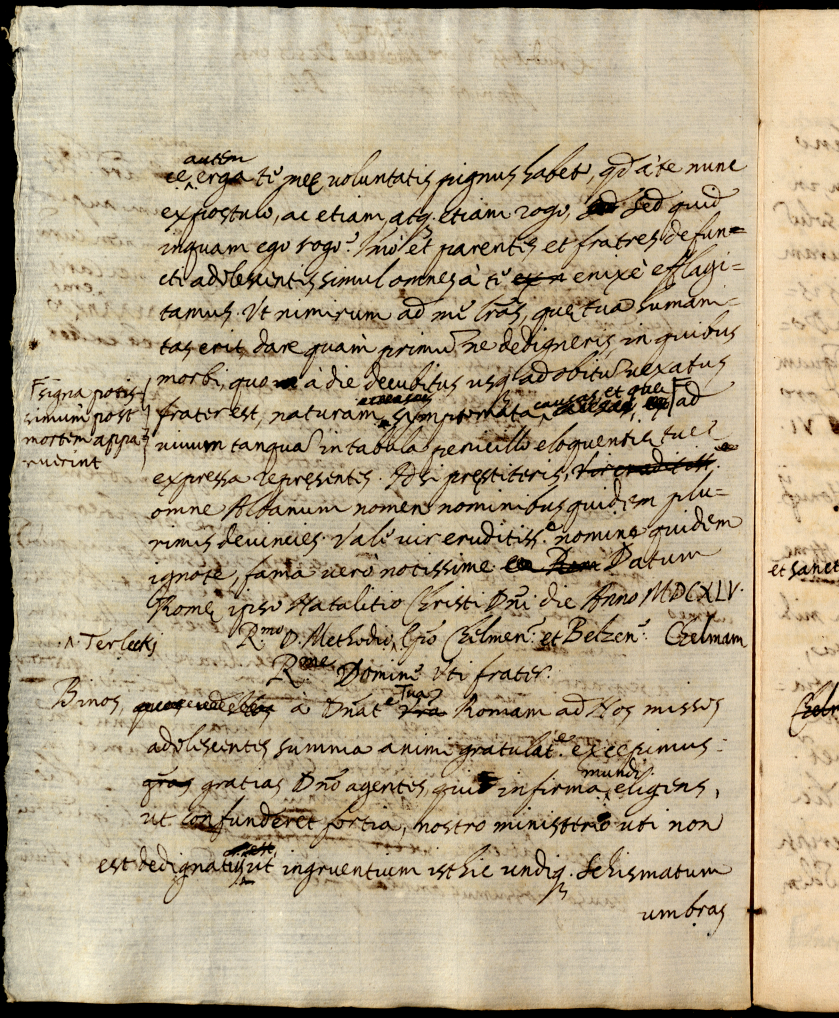 autem
ee, erga te meę voluntatis pignus habet, qd à te nunc
expostulo, ac etiam atq. etiam rogo, sed Sed quid
inquam ego rogo? Imò et parentes et fratres defun=
cti adolescentis simul omnes à te enixè efflagi=
tamus. Ut nimirum ad me lras, quę tua humani=
tas erit dare quam primũ ne dedigneris, in quibus
morbi, quo à die decubitus usq. ad obitũ vexatus
Γsigna potis
simum post
mortem appa
ruerint
frater est, naturam, symptomata, causas, et quę Γ ad
vivum tanquã in tabula penicillo eloquentię tuę
expressa repręsentes. Id si pręstiteris, vir eruditiss.e
omne Albanum nomen nominibus quidem plu=
rimis devincies. Vale vir eruditiss.e nomine quidem
ignote, fama vero notissime. Datum
Romę ipso Natalitio Christi Dni die Anno MDCXLV.
R.mo D. Methodio, Epo Chelmen. et Belzen. Chelmam
^ Terlecki
R.me Domine Uti frater.
Binos, à Dnat.e Tua Vra Romam ad Nos missos
adolescentes summa animi gratulat.e excepimus:
gras gratias Dno agentes, qui infirma mundi eligens,
ut confunderet fortia, nostro ministerio uti non
est dedignatus, ut ingruentium isthic undiq. Schismatum
umbras
et sanct